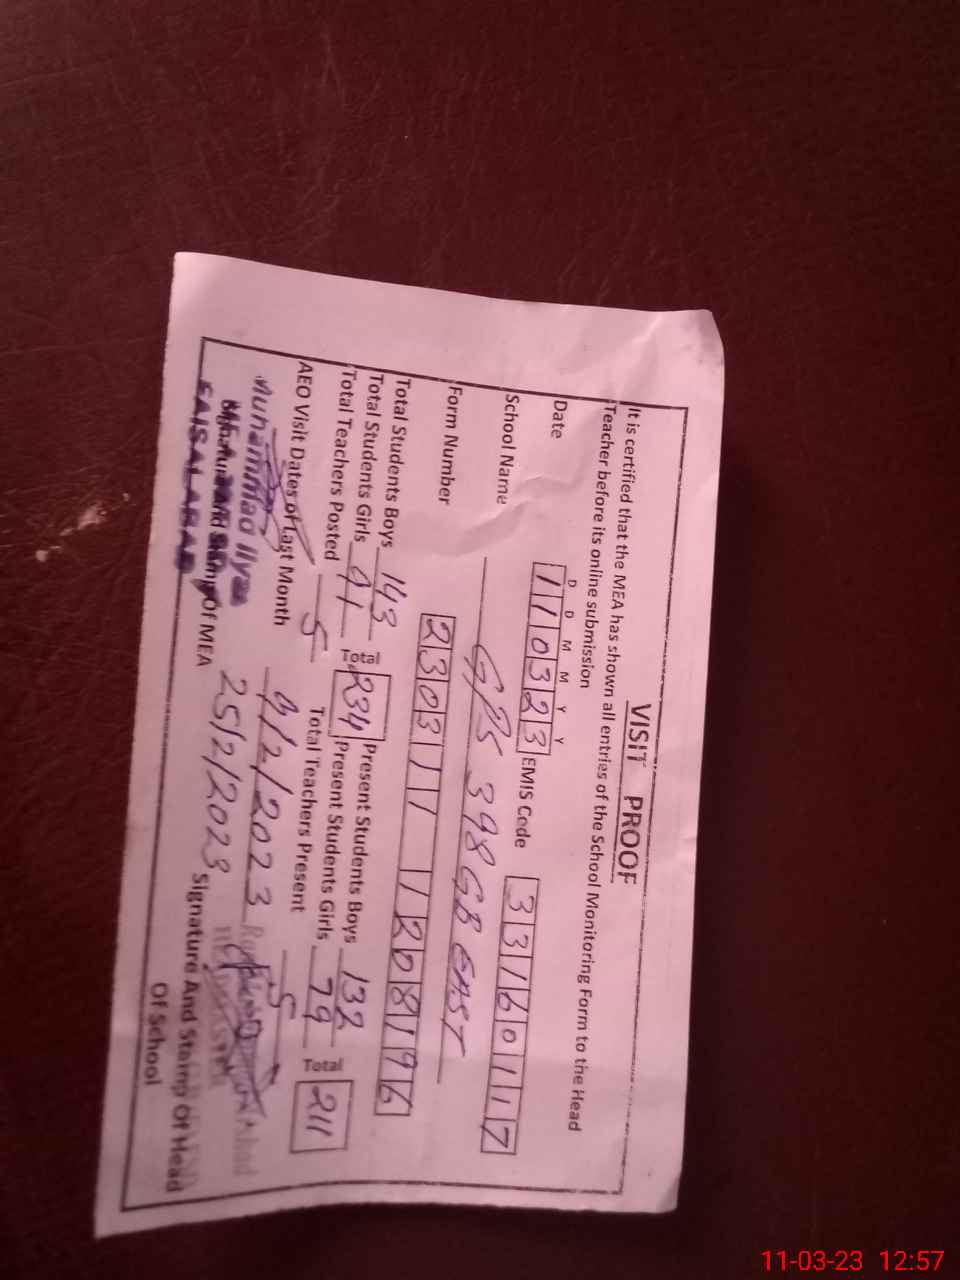 VISIT PROOF
It is certified that the MEA has shown all entries of the School Monitoring Form to the Head
Teacher before its online submission
D D M M Y Y
Date 110323 EMIS Code 33160117
School Name GPS 398 GB EAST
Form Number 230311 1208196
Total Students Boys 143 Present Students Boys 132
Total Students Girls 91 Total 234 Present Students Girls 79 Total 211
Total Teachers Posted 5 Total Teachers Present 5
AEO Visit Dates of Last Month 9/2/2023
25/2/2023
Muhammad Ilyas
MEA
FAISALABAD
Signature And Stamp Of MEA
Signature And Stamp Of Head
Of School
11-03-23 12:57